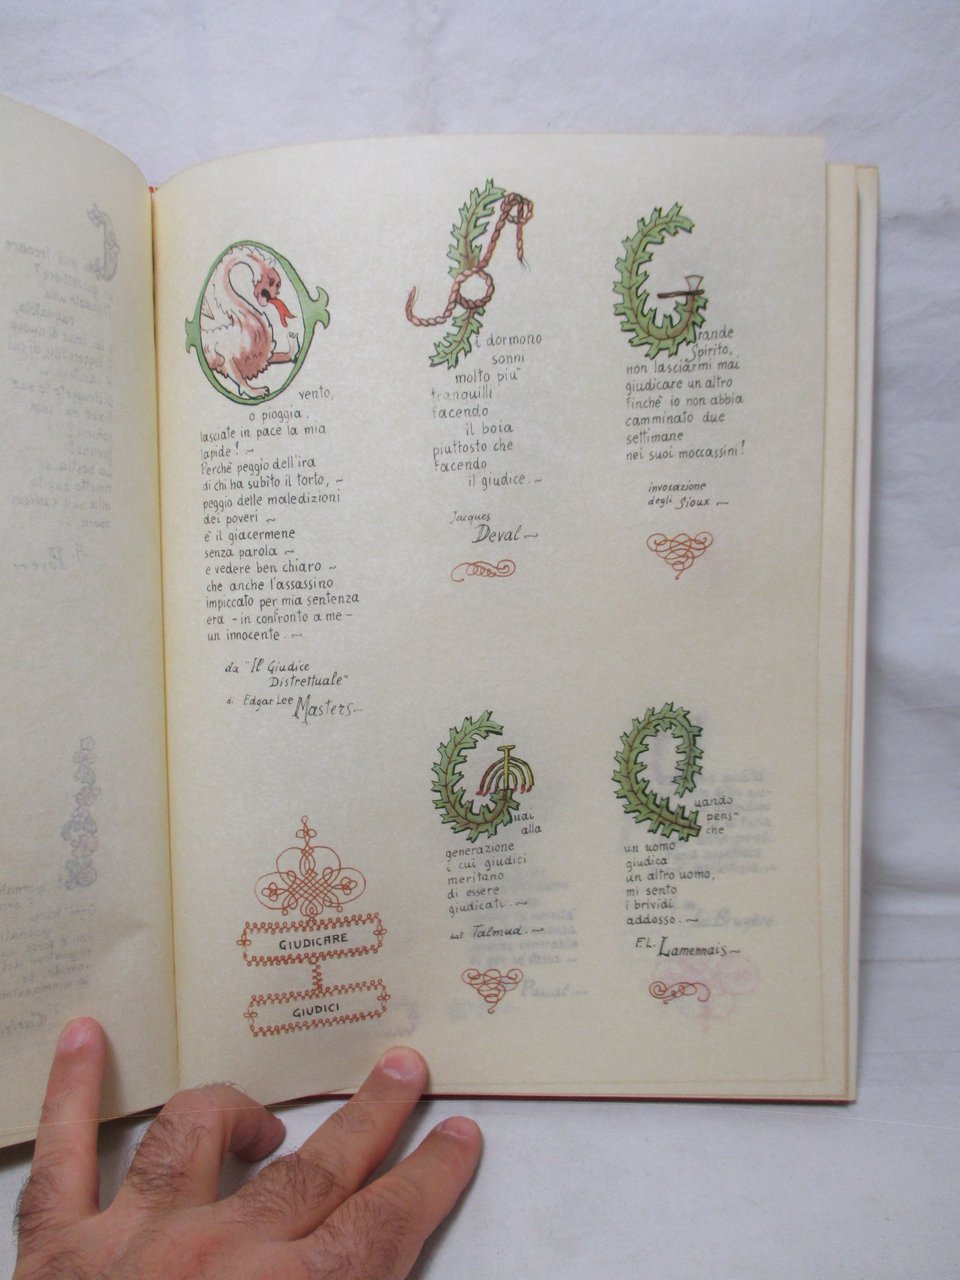 O vento,
o pioggia,
lasciate in pace la mia
lapide! ~
Perchè peggio dell'ira
di chi ha subìto il torto, ~
peggio delle maledizioni
dei poveri ~
è il giacermene
senza parola ~
e vedere ben chiaro ~
che anche l'assassino
impiccato per mia sentenza
era - in confronto a me -
un innocente. ~
da "Il Giudice
Distrettuale"
di Edgar Lee
Masters ~
GIUDICARE
GIUDICI
Si dormono
sonni
molto più
tranquilli
facendo
il boia
piuttosto che
facendo
il giudice. ~
Jacques
Deval ~
Grande
Spirito,
non lasciarmi mai
giudicare un altro
finchè io non abbia
camminato due
settimane
nei suoi moccassini!
invocazione
degli Sioux ~
Guai
alla
generazione
i cui giudici
meritano
di essere
giudicati. ~
dal Talmud. ~
Quando
pens-
che
un uomo
giudica
un altro uomo,
mi sento
i brividi
addosso. ~
F.L. Lamennais ~